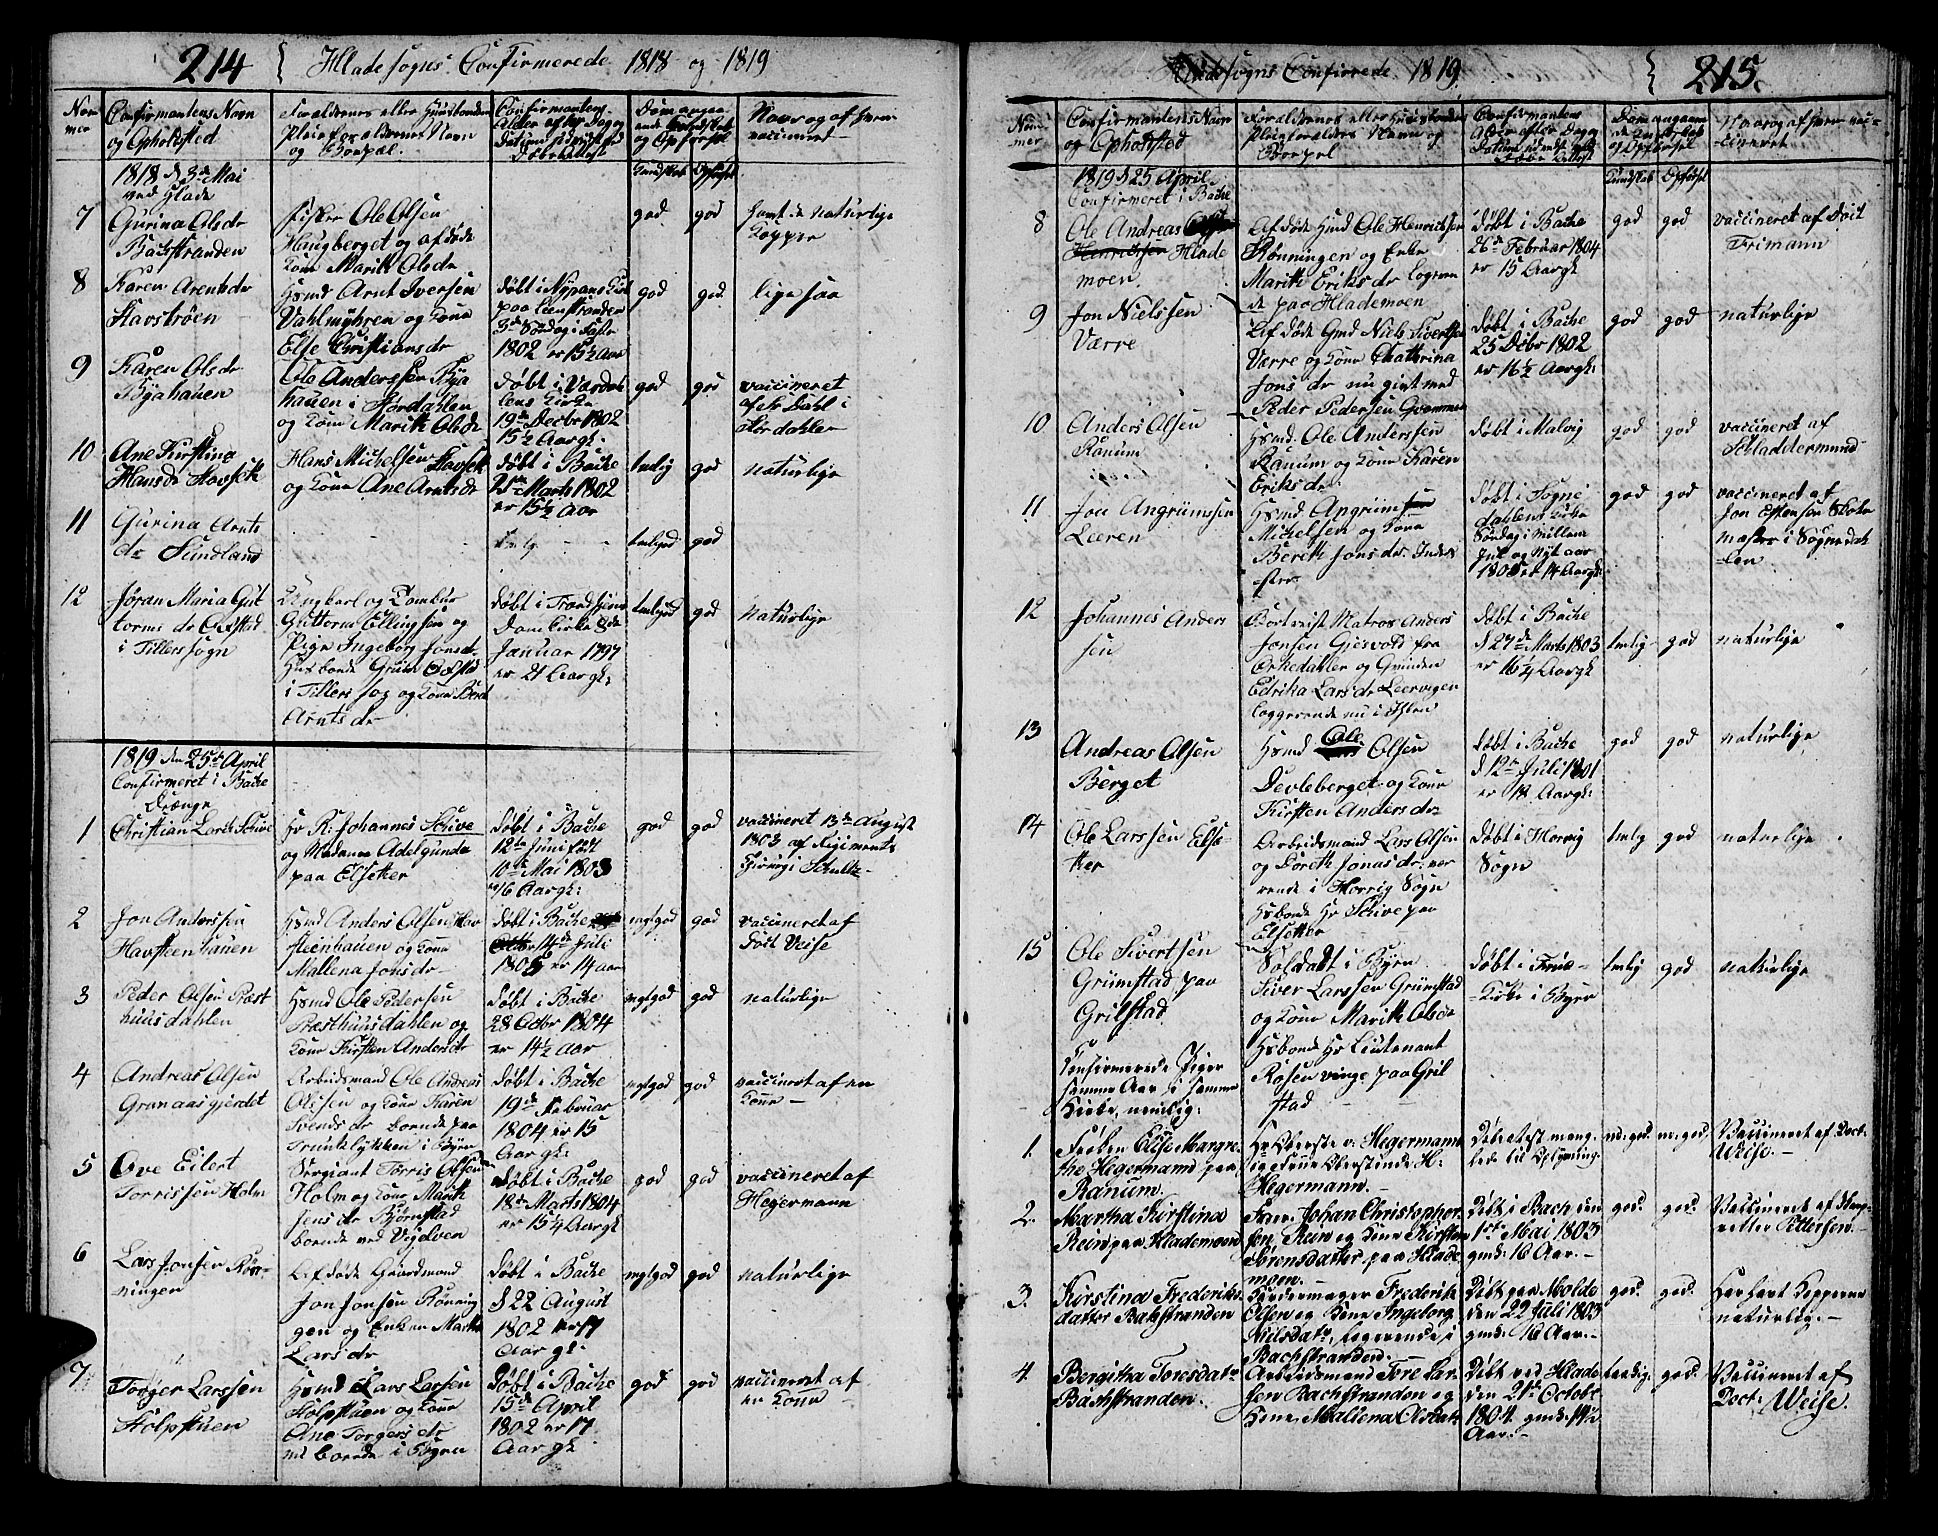 214 Hlade sogns Confirmerede 1818 og 1819
Num
mer
Confirmantens Navn
og Opholdsted
Forældrenes eller Huusbonden
Pleieforældrenes Navn
og Boepæl.
Confirmantens
Alder efter Dag og
Datum
Døbe Attest
Dom angaa
ende Kundskab
og Opførsel
Naar og af hvem
vaccineret
Kundskab Opførsel
1818 d 3de Mai
ved Hlade
7
Gurina Olsdr
Bachstranden
Fisker Ole Olsen
Haugberget og afdøde
Kone Marith Olsdr
god god
havt de naturlige
Kopper
8
Karen Arentsdr
Stavstrøen
Hsmd Arnt Iversen
Vahlmyhren og Kone
Else Christiansdr
døbt i Nypans Kirk
paa Leenstranden
3de Søndag i Faste
1802 er 15½ Aar
god god
ligesaa
9
Karen Olsdr
Byahauen
Ole Anderssen Bya
hauen i Størdahlen
og Kone Marith Olsdr
døbt i Værdah
lens Kirke
19de Decbr 1802
15½ Aar gl:
god god
vaccineret
af Hr Dahl i
Størdahlen
10
Ane Kirstina
Hansdr Havsteh
Hans Michelsen Havsteh
og Kone Ane Arntsdr
døbt i Bache
Marts 1802
er 15½ Aar
temlig god
naturlige
11
Gurina Arnts
dr Sundland
temlig god
12
Jøran Maria Gut
torms dr Oxstad
i Tillersogn
Ungkarl og Tambur
Guttorm Ellingsen og
Pige Ingeborg Jonsdr
Husbonde Grum Oxstad
i Tillers sog og Kone Berit
Arntsdr
døbt i Trondhjems
Domkirke 8de
Januar 1797
er 21 Aar gl:
temlig god
naturlige
1819 den 25de April
Confirmeret i Bache
Drænge
1
Christian Lorch Schive
Hr R: Johannes Schive
og Madame Adelgunda
paa Elsetter
døbt i Bache
12te Juni født
10de Mai 1803
16 Aar gl:
god god
vaccineret 13de August
1803 af Regiments
Chirurgi Schultz
2
Jon Anderssen
Havsteenhauen
Hsmd Anders Olsen Hav
steenhauen og Kone
Mallena Jonsdr
døbt i Bache
14de Juli
1805 er 14 aar
mgl god god
vaccineret af
Doct Weise
3
Peder Olsen Præst
huusdahlen
Hsmd Ole Pedersen
Præsthuusdahlen og
Kone Kirsten Andersdr
døbt i Bache
28 Octbr 1804
er 14½ Aar
mgl god god
naturlige
4
Andreas Olsen
Granaasgjerdet
Arbeidsmand Ole Andreas
Olssen og Kone Karen
Svends dr boende paa
Trunklykken i Byen
døbt i Bache
19de Februar
1804 er 15
Aar gl:
mgl god god
vaccineret af en
Kone
5
Ove Eilert
Torrissen Holm
Sergiant Torris Olsen
Holm og Kone Marith
Jens dr Bjørnstad
boende ved Vejelven
døbt i Bache
18de Marts 1804
er 15¼ Aar gl:
god god
vaccineret af
Hegermann
6
Lars Jonsen Røn
ningen
Afdøde Gaardmand
Jon Jonsen Rønnin
gen og Enken Marth
Larsdr
døbt i Bache
d 22 August
1802 er 17
Aar gl:
mgl god god
naturlige
7
Torger Larssen
Holpstuen
Hsmd Lars Larsen
Holpstuen og Kone
Ane Torgers dr
nu boende i Byen
døbt i Bache
15de April
1802 er 17
Aar gl:
god god
vaccineret af
en Kone
Hlade sogns Confirrede 1819. 215.
Num
mer
Confirmantens Navn
og Opholdsted
Forældrenes eller Huusbondens
Pleieforældres Navn og
Boepæl
Confirmantens
Alder efter Dag og
Datum
Døbe Attest
Dom angaaen
de Kundskab
og Opførsel
Naar og af hvem vac-
cineret
Kundskab Opførsel
1819 d 25 April
Confirmeret i Bache
8
Ole Andreas
Henrichsen Hlade
moen.
Afdøde Hsmd Ole Henrichsen
Rønningen og Enke
Marith Eriks dr logeren
de paa Hlademoen
døbt i Bache
26de Februar 1804
er 15 Aar gl
god god
vaccineret af Doct
Frimann
9
Jon Nielssen
Værre
Afdøde Gmd Niels Sivertsen
Værre og Kone Chathrina
Jons dr nu givt med
Peder Pedersen Grammen
døbt i Bache
25 Decbr 1802
er 16½ Aar gl:
god god
naturlige
10
Anders Olsen
Ranum
Hsmd. Ole Anderssen
Ranum og Kone Karen
Eriksdr
døbt i Malvig
god god
vaccineret af
Schladdermund
11
Jon Angrimssen
Leeren
Hsmd Angrim
Michelsen og Kone
Bereth Jons dr Inder
-øen
døbt i Sogne
dahlens Kirke
Søndag imillem
Jul og Nyt aar
1805 er 14 Aar gl:
god god
vaccineret af
Jon Estensen Skole
master i Sognedah
len
12
Johannes Anders
sen
Bortreist Matros Anders
Jonsen Gjesvold paa
Orkedahlen og Qvinden
Edrika Lars dr Leervigen
loggerende nu i Ihlen
døbt i Bache
d 27de Marts 1803
er 16¼ Aar gl
temlig god
naturlige
13
Andreas Olsen
Berget
Hsmd Ole Olsen
Devleberget og Kone
Kirsten Anders dr
døbt i Bache
d 12te Juli 1801
er 18 Aar gl:
god god
naturlige
14
Ole Larssen Else-
tter
Arbeidsmand Lars Olsen
og Dorth Jonas dr vær
rende i Horrig Sogn
Hsbonde Hr Schive paa
Elsetter
døbt i Horrig
Sogn
temlg god
naturlige
15
Ole Sivertsen
Grümstad paa
Grilstad
Soldadt i Byen
Siver Larssen Grümstad
og Kone Marith Olsdr
Hsbonde Hr Lieutenant
Rosenvinge paa Gril
stad
døbt i Frue-
Kirke i Byen
temlig god
naturlige
Confirmerede Piger
samme Aar i samme
Kirke, nemlig:
1.
Frøken Else Margre-
the Hegermann paa
Ranum.
Hr Oberste v: Hegermann
og Frue Oberstinde H:
Hegermann.
Døbeattest mang-
lede til Oplysning.
m: god. m: god.
Vaccineret af Doct:
Weise.
2.
Martha Kirstina
Rein paa Hlademoen
Johan Christopher-
sen Rein og Kone Kirsten
Sørensdatter paa Hlade
moen.
Døbt i Bach den
1ste Mai 1803
gml: 16 Aar.
god. god.
Vaccineret af
Pettersen.
3.
Kirstina Frederiks-
datter Bachstranden
Frederik
Olsen og Kone Ingeborg
Nielsdatr, logerende i
Bachstranden.
Døbt paa Molde
den 22 Juli 1803
gml: 16 Aar.
god. god.
Har havt Kopperne
naturlig.
4.
Bergitha Toresdatr
Bachstranden.
Arbeidsmand Tore Lar-
sen Bachstranden og
Kone Mallena Olsdatr
Døbt ved Hlade
den 21de Octobr
1804. gml: 14½
Aar.
temlig god.
Vaccineret af
Doct: Weise.